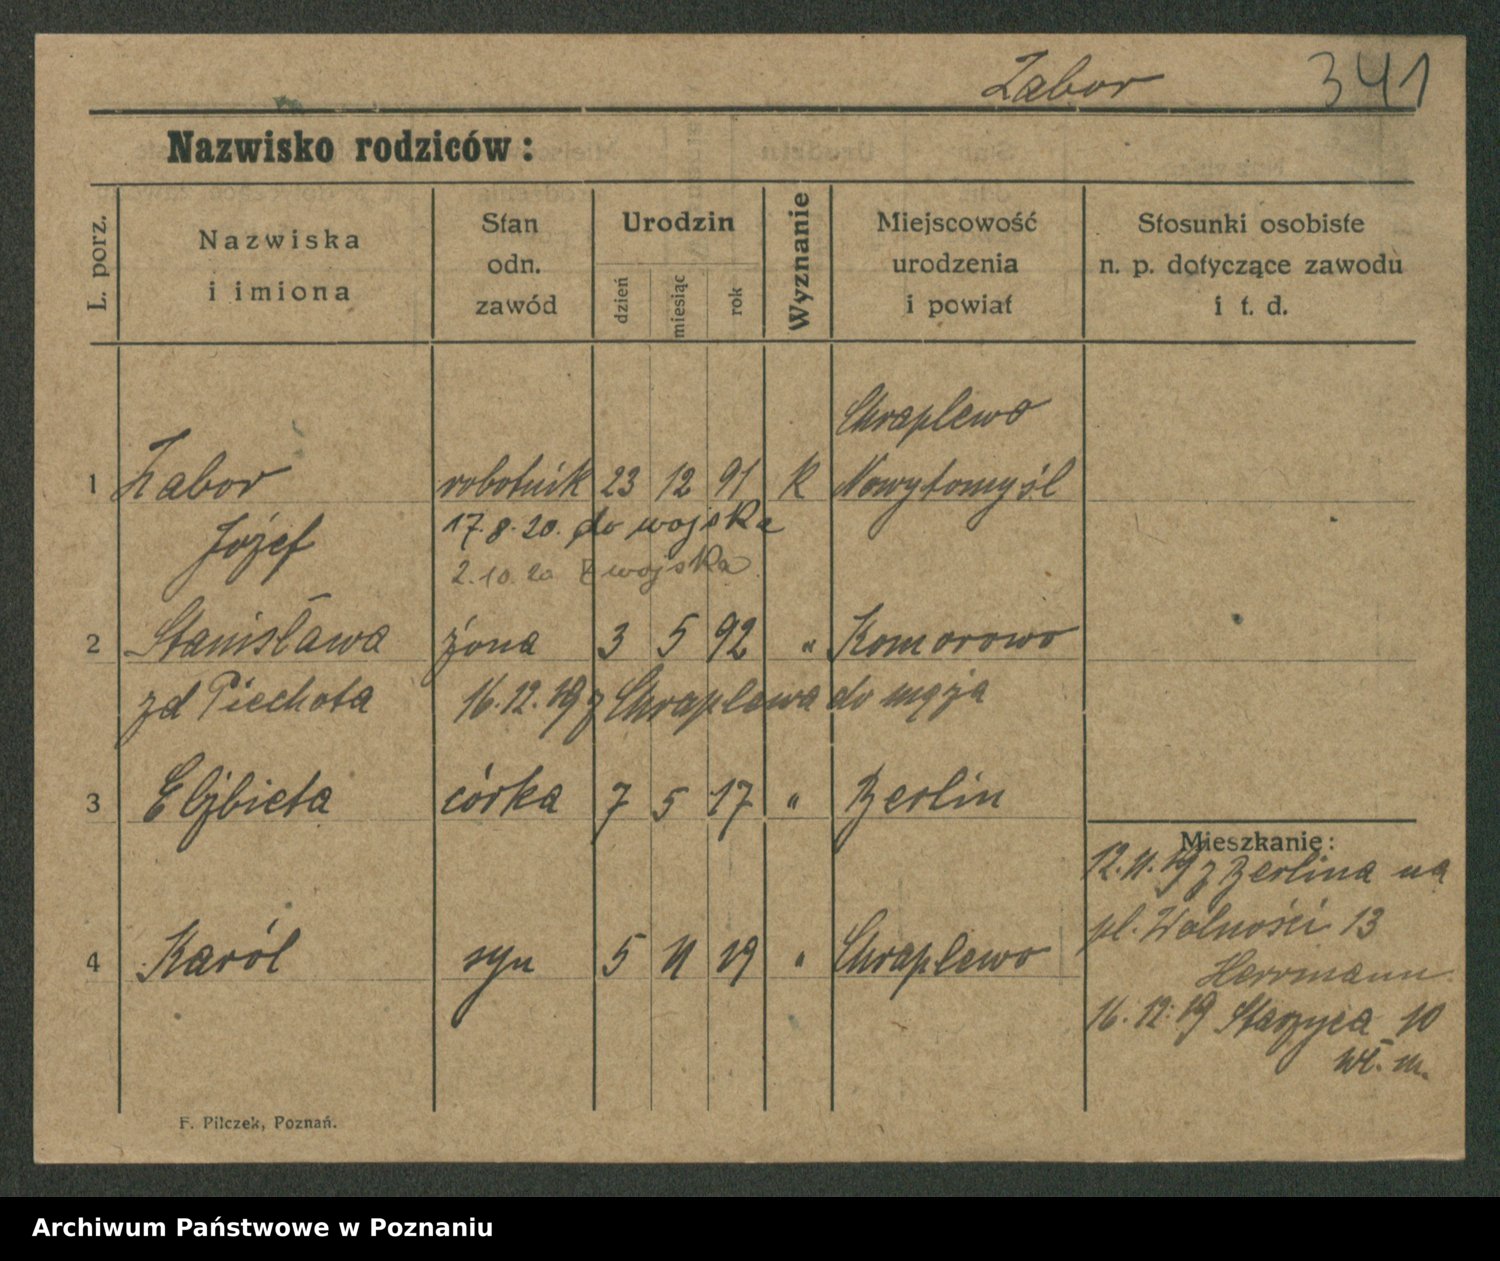 Zabor 341
Nazwisko rodziców:
L. porz.
Nazwiska
i imiona
Stan
odn.
zawód
Urodzin
dzień
miesiąc
rok
Wyznanie
Miejscowość
urodzenia
i powiat
Stosunki osobiste
n. p. dotyczące zawodu
i t. d.
Chraplewo
1 Zabor robotnik 23 12 91 K Nowytomyśl
Józef 17.8.20. do wojska
2.10.20 z wojska.
2 Stanisława żona 3 5 92 " Komorowo
zd Piechota 16.12.19 z Chraplewa do męża
3 Elżbieta córka 7 5 17 " Berlin
Mieszkanie:
12.11.19 z Berlina na
pl. Wolności 13
4 Karól syn 5 11 19 " Chraplewo
Herrmann
16.12.19 10
wł. m.
F. Pilczek, Poznań.
Archiwum Państwowe w Poznaniu